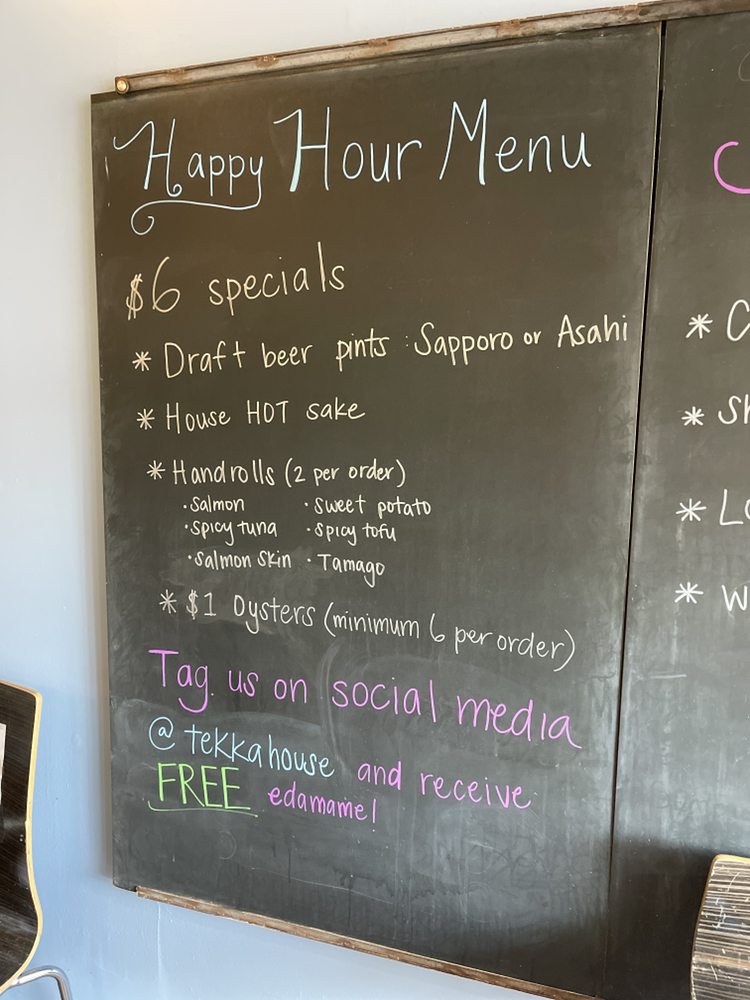 Happy Hour Menu
$6 specials
* Draft beer pints : Sapporo or Asahi
* House HOT sake
* Handrolls (2 per order)
· Salmon · sweet potato
· spicy tuna · spicy tofu
· Salmon Skin · Tamago
* $1 Oysters (minimum 6 per order)
Tag us on social media
@tekkahouse and receive
FREE edamame!